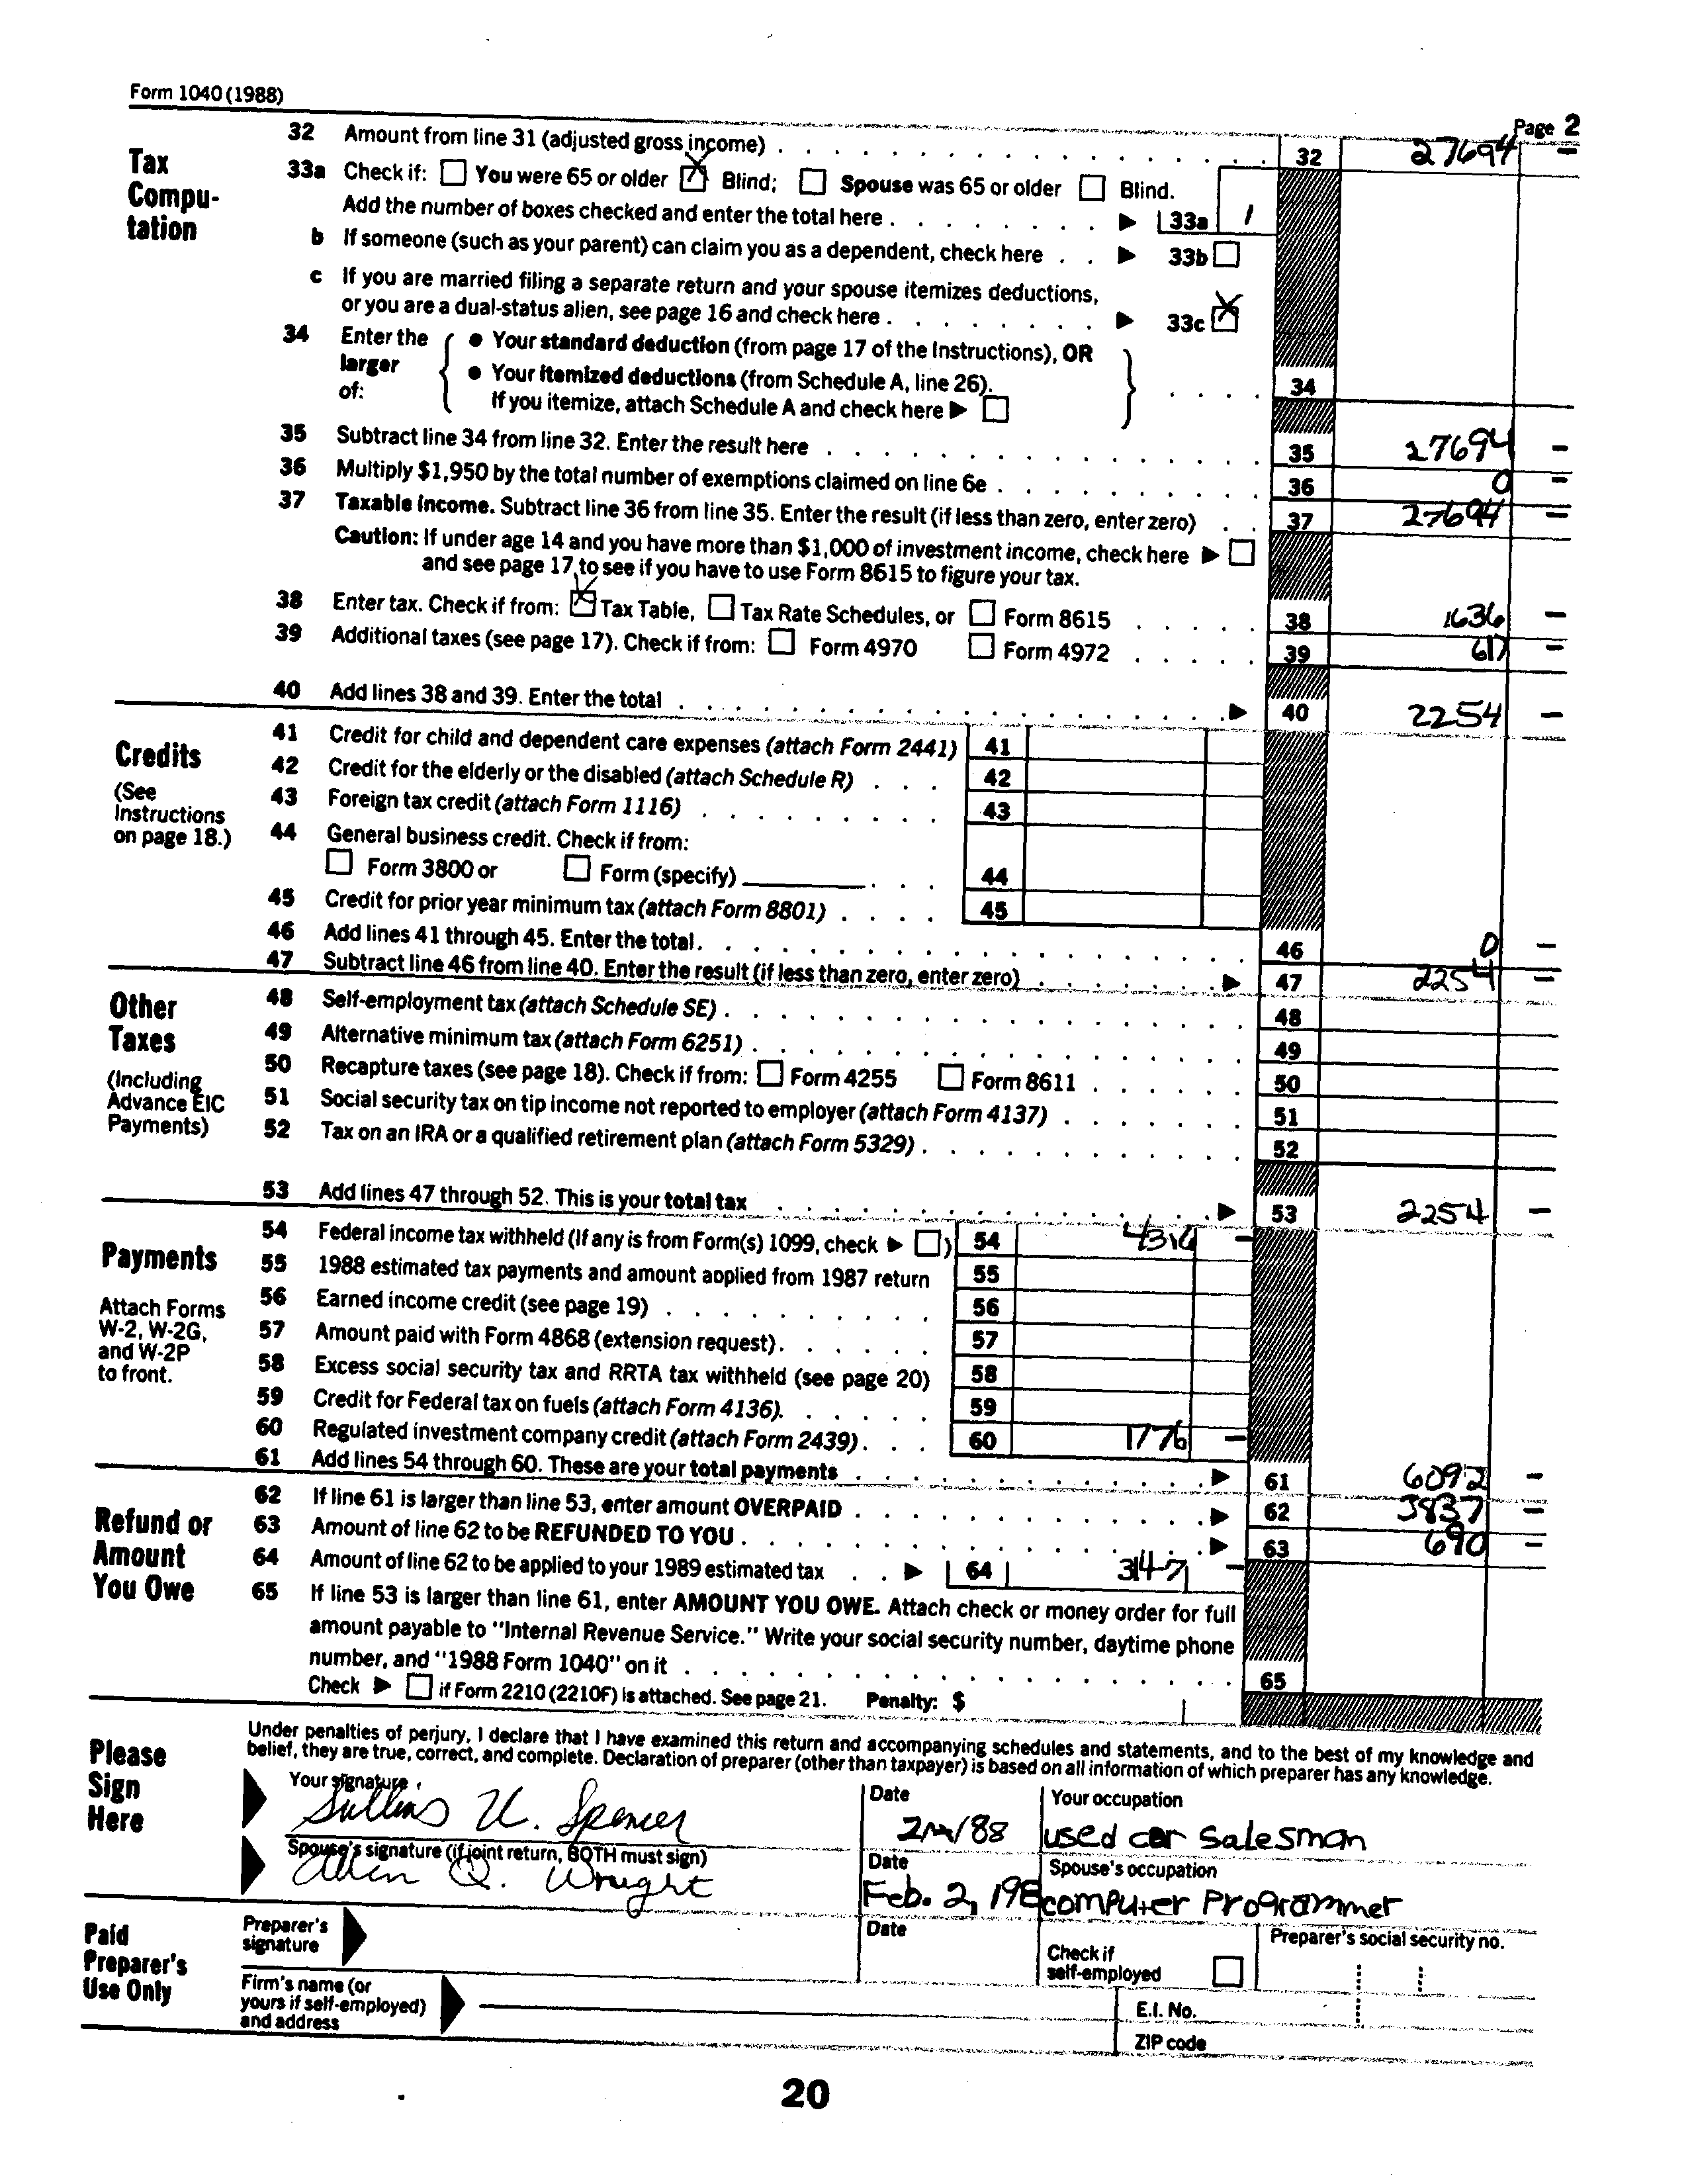 Form 1040 (1988)
Page 2
Tax Compu- tation
32 Amount from line 31 (adjusted gross income) . . . 32 27694 –
33a Check if: ☐ You were 65 or older ☒ Blind; ☐ Spouse was 65 or older ☐ Blind.
Add the number of boxes checked and enter the total here . . . ▶ 33a 1
b If someone (such as your parent) can claim you as a dependent, check here . . ▶ 33b ☐
c If you are married filing a separate return and your spouse itemizes deductions,
or you are a dual-status alien, see page 16 and check here . . . ▶ 33c ☒
34 Enter the larger of:
● Your standard deduction (from page 17 of the Instructions), OR
● Your itemized deductions (from Schedule A, line 26).
If you itemize, attach Schedule A and check here ▶ ☐ . . . . 34
35 Subtract line 34 from line 32. Enter the result here . . . 35 27694 –
36 Multiply $1,950 by the total number of exemptions claimed on line 6e . . . 36 0 –
37 Taxable income. Subtract line 36 from line 35. Enter the result (if less than zero, enter zero) . . 37 27694 –
Caution: If under age 14 and you have more than $1,000 of investment income, check here ▶ ☐
and see page 17 to see if you have to use Form 8615 to figure your tax.
38 Enter tax. Check if from: ☒ Tax Table, ☐ Tax Rate Schedules, or ☐ Form 8615 . . . 38 1636 –
39 Additional taxes (see page 17). Check if from: ☐ Form 4970 ☐ Form 4972 . . . 39 617 –
40 Add lines 38 and 39. Enter the total . . . ▶ 40 2254 –
Credits
(See Instructions on page 18.)
41 Credit for child and dependent care expenses (attach Form 2441) 41
42 Credit for the elderly or the disabled (attach Schedule R) . . . 42
43 Foreign tax credit (attach Form 1116) . . . 43
44 General business credit. Check if from:
☐ Form 3800 or ☐ Form (specify) ________ . . . 44
45 Credit for prior year minimum tax (attach Form 8801) . . . . 45
46 Add lines 41 through 45. Enter the total . . . 46 0 –
47 Subtract line 46 from line 40. Enter the result (if less than zero, enter zero) . . . ▶ 47 2254 –
Other Taxes
(Including Advance EIC Payments)
48 Self-employment tax (attach Schedule SE) . . . 48
49 Alternative minimum tax (attach Form 6251) . . . 49
50 Recapture taxes (see page 18). Check if from: ☐ Form 4255 ☐ Form 8611 . . . 50
51 Social security tax on tip income not reported to employer (attach Form 4137) . . . 51
52 Tax on an IRA or a qualified retirement plan (attach Form 5329) . . . 52
53 Add lines 47 through 52. This is your total tax . . . ▶ 53 2254 –
Payments
Attach Forms W-2, W-2G, and W-2P to front.
54 Federal income tax withheld (If any is from Form(s) 1099, check ▶ ☐) 54 4316 –
55 1988 estimated tax payments and amount applied from 1987 return 55
56 Earned income credit (see page 19) . . . 56
57 Amount paid with Form 4868 (extension request) . . . 57
58 Excess social security tax and RRTA tax withheld (see page 20) 58
59 Credit for Federal tax on fuels (attach Form 4136). . . . 59
60 Regulated investment company credit (attach Form 2439) . . . 60 1776 –
61 Add lines 54 through 60. These are your total payments . . . ▶ 61 6092 –
Refund or Amount You Owe
62 If line 61 is larger than line 53, enter amount OVERPAID . . . ▶ 62 3837 –
63 Amount of line 62 to be REFUNDED TO YOU . . . ▶ 63 690 –
64 Amount of line 62 to be applied to your 1989 estimated tax . . ▶ 64 3147 –
65 If line 53 is larger than line 61, enter AMOUNT YOU OWE. Attach check or money order for full
amount payable to "Internal Revenue Service." Write your social security number, daytime phone
number, and "1988 Form 1040" on it . . . 65
Check ▶ ☐ if Form 2210 (2210F) is attached. See page 21. Penalty: $
Please Sign Here
Under penalties of perjury, I declare that I have examined this return and accompanying schedules and statements, and to the best of my knowledge and
belief, they are true, correct, and complete. Declaration of preparer (other than taxpayer) is based on all information of which preparer has any knowledge.
Your signature Date Your occupation
U. Spencer /88 used car salesman
Spouse's signature (if joint return, BOTH must sign) Date Spouse's occupation
Allen Q. Wright Feb. 2, 198 computer programmer
Paid Preparer's Use Only
Preparer's signature Date Check if self-employed ☐ Preparer's social security no.
Firm's name (or yours if self-employed) and address E.I. No.
ZIP code
20